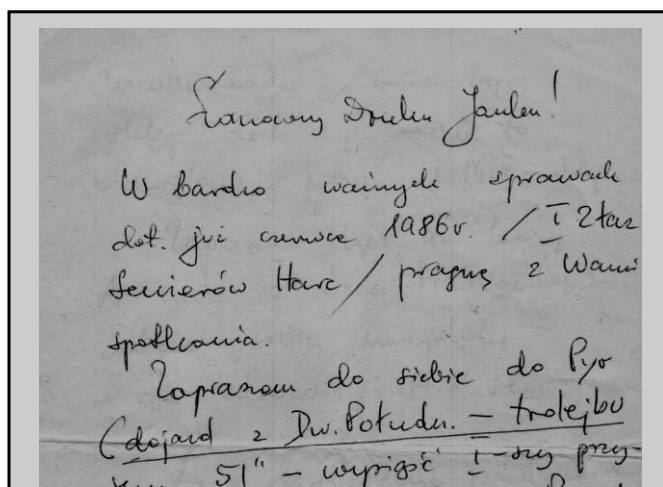 Szanowny Druhu Janku!
W bardzo ważnych sprawach
dot. już czerwca 1986 r. / I Zlaz
Seniorów Harc / pragnę z Wami
spotkania.
Zapraszam do siebie do Pyr
(dojazd z Dw. Połudn. – trolejbu
51" – wysiąść I-szy przy-